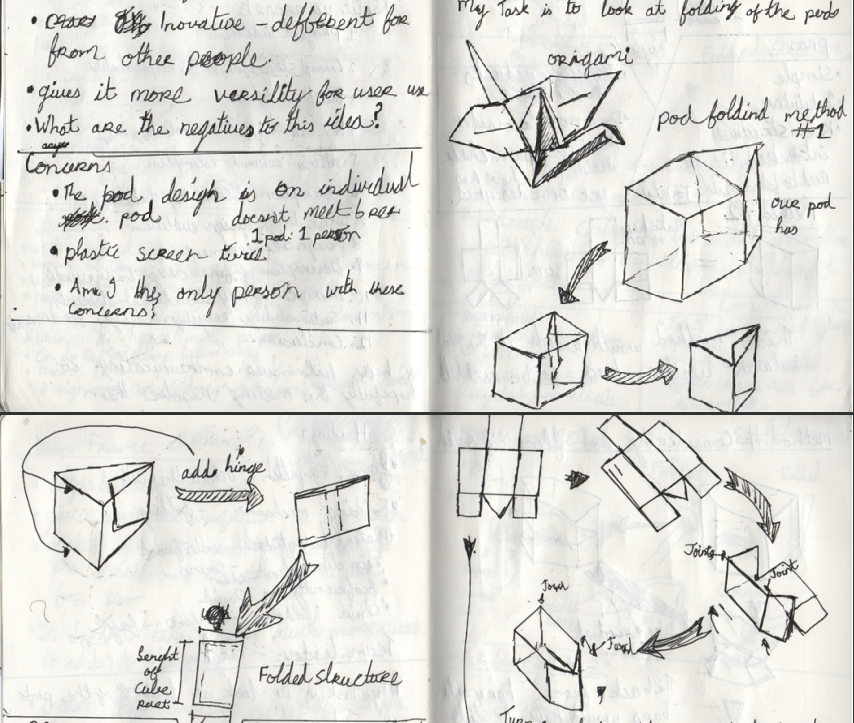 • Inovative - defferent for
from other people.
• gives it more versility for user use
• What are the negatives to this idea?
Concerns
• The pod desigh is on individual
pod doesnt meet
1 pod: 1 person
• plastic screen
• Am I the only person with these
Concerns?
My Task is to look at folding of the pods
origami
pod folding method
#1
our pod
has
add hinge
?
of
Cube
part
Folded structure
Joints
Joint